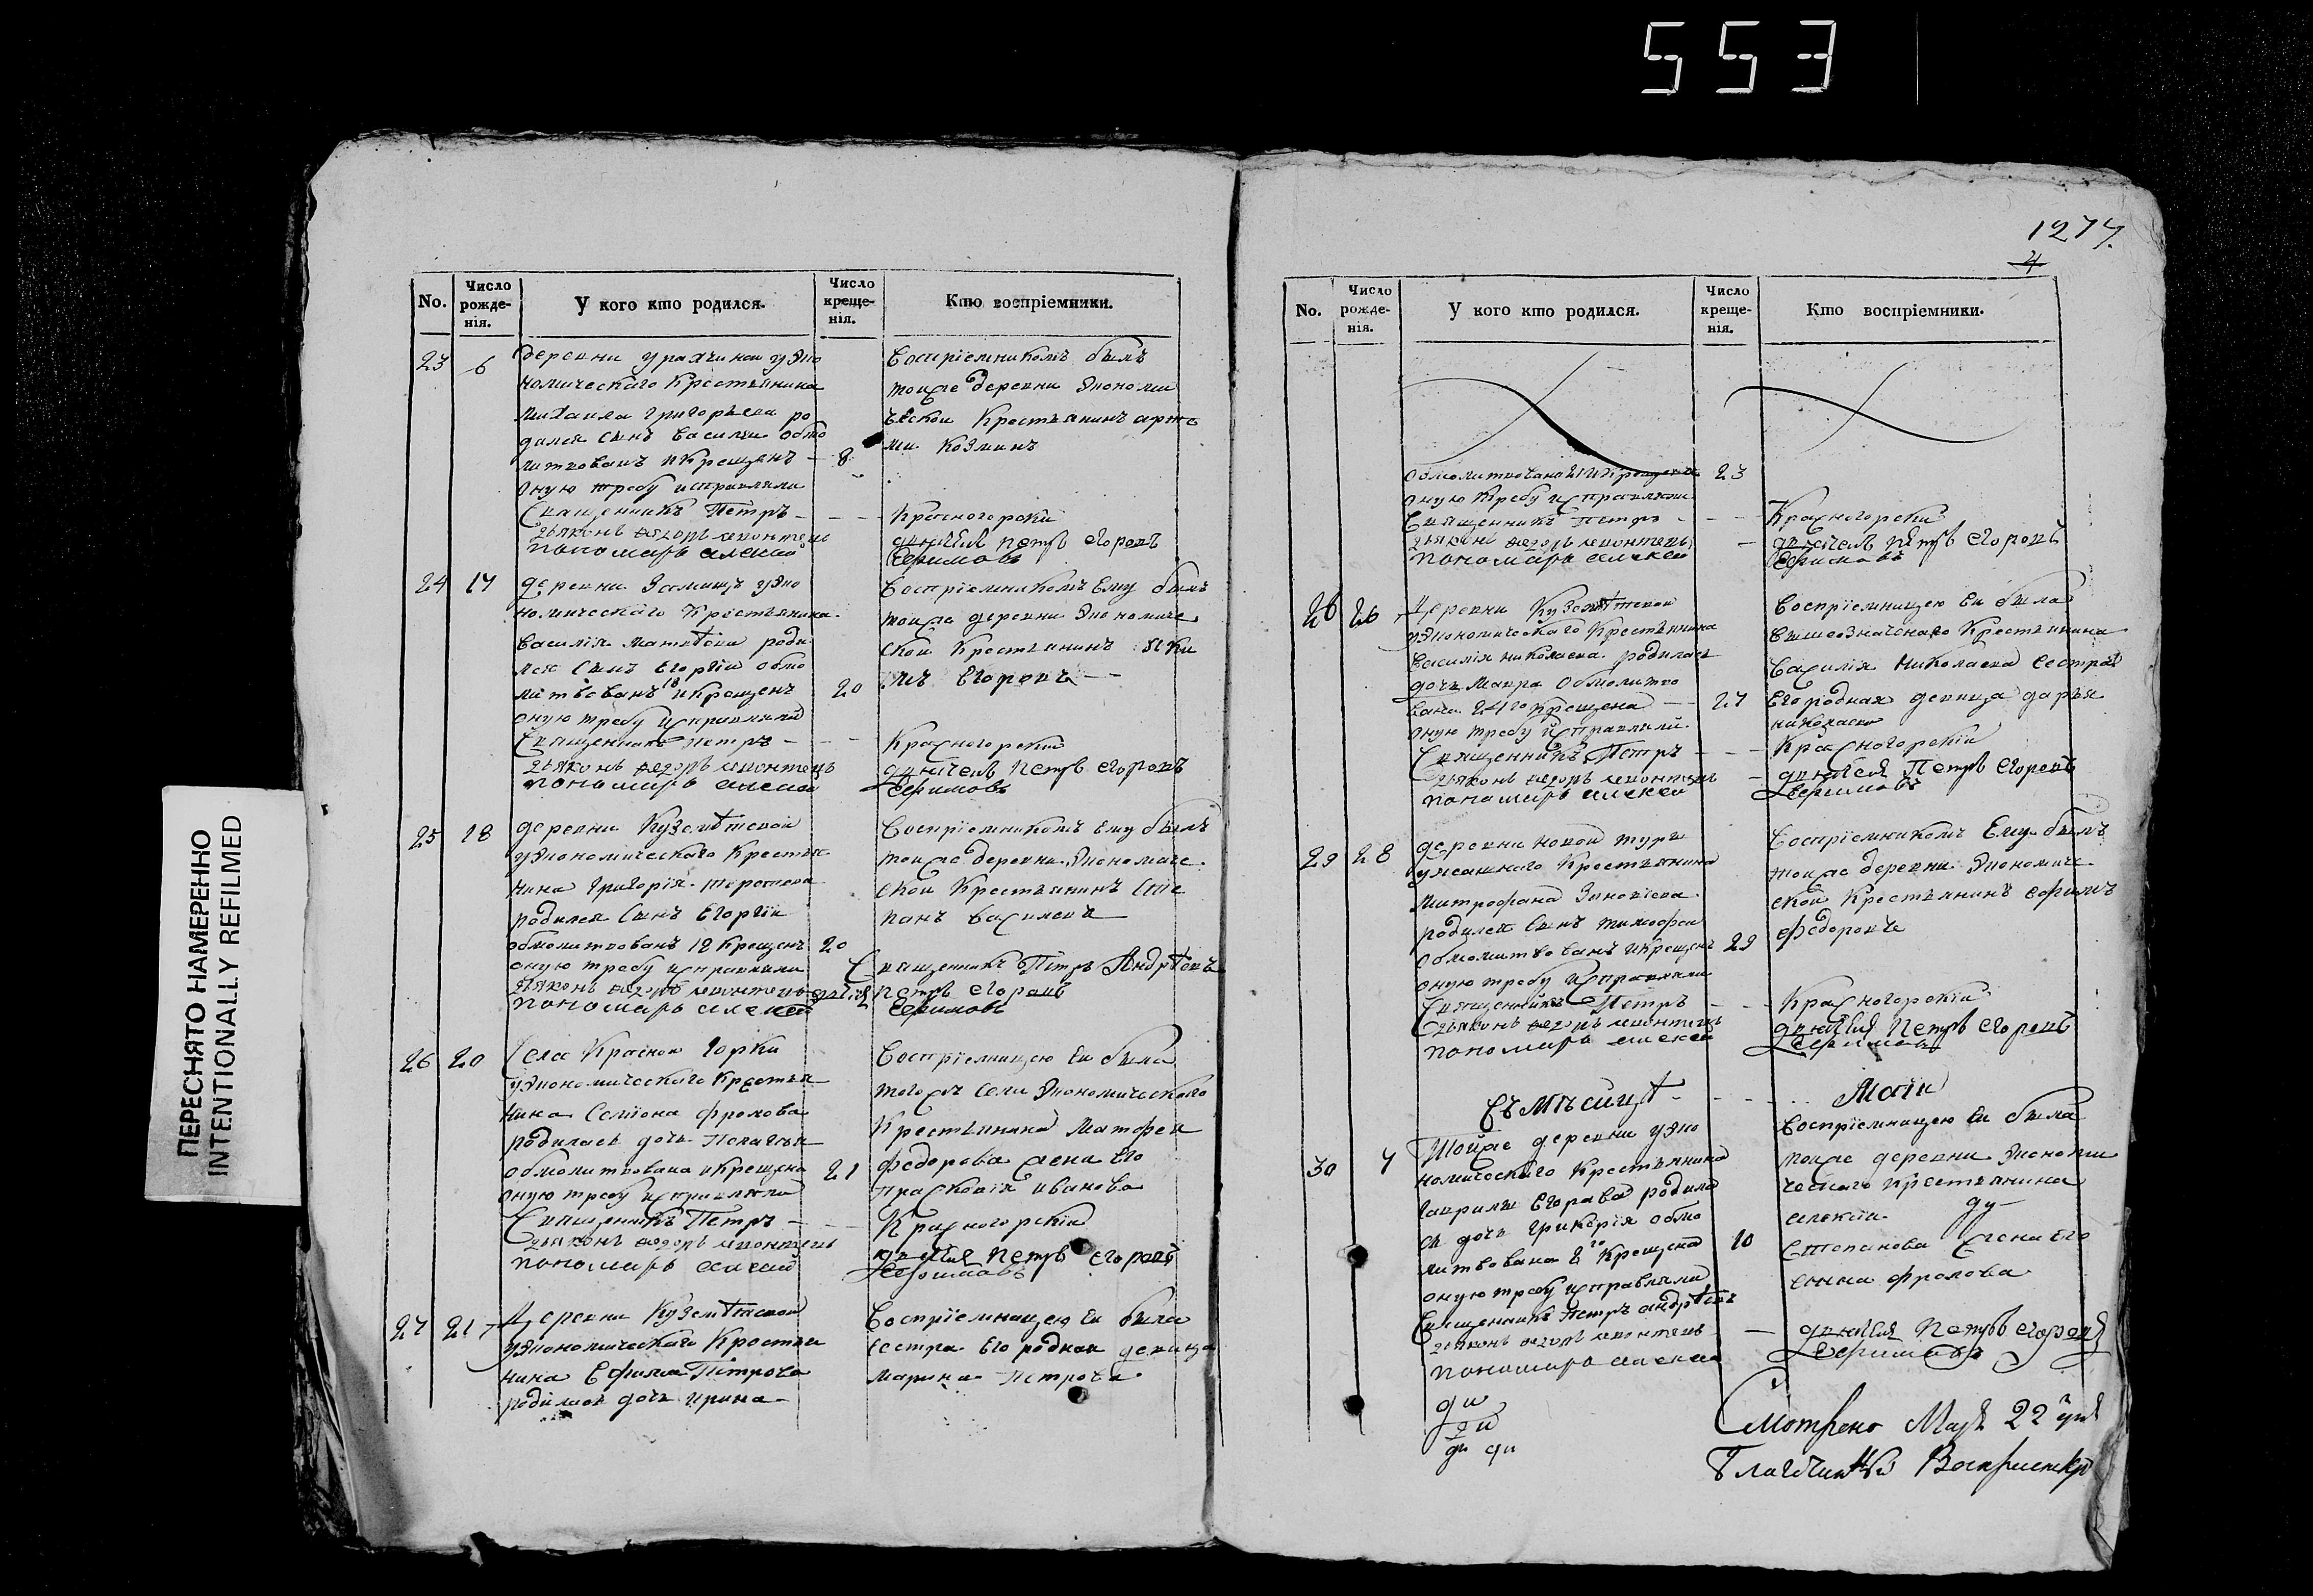 553
ПЕРЕСНЯТО НАМЕРЕННО
INTENTIONALLY REFILMED
No.
Число рожде-нія.
У кого кто родился.
Число креще-нія.
Кто воспріемники.
23 6
деревни у эко
номическаго Крестьянина
Михаила Григорьева ро
дился сынъ Василии обмо
литвованъ и Крещенъ 8
оную требу исправляли
Священникъ Петръ
дьяконъ Федоръ леонтевъ
пономарь алексеи
Воспріемникомъ былъ
тоиже деревни Экономи
ческои Крестьянинъ арте
ми Козминъ
Красногорскии
дьячекъ Петръ Егоровъ
Ефимовъ
24 17
деревни у эко
номическаго Крестьянина
Василія Матвѣева роди
лся сынъ Егоргіи обмо
литвованъ 18 и Крещенъ 20
оную требу исправляли
Священникъ Петръ
дьяконъ Федоръ леонтевъ
пономарь алексеи
Воспріемникомъ Ему былъ
тоиже деревни Экономиче
скои Крестьянинъ Яки
мъ Егоровъ
Красногорскіи
дьячекъ Петръ Егоровъ
Ефимовъ
25 18
деревни Куземѣтевои
у Экономическаго Крестья
нина Григорія
родился Сынъ Егоргіи
обмолитвованъ 19 Крещенъ 20
оную требу исправляли
дьяконъ Федоръ леонтевъ
пономарь алексеи
Воспріемникомъ Ему былъ
тоиже деревни Экономиче
скои Крестьянинъ Сте
панъ Василевъ
Священникъ Петръ Андрѣевъ
Петръ Егоровъ
Ефимовъ
26 20
Села Краснои Горки
у Экономическаго Крестья
нина Семіона Фролова
родилась дочь Пелагѣя
обмолитвована и Крещена 21
оную требу исправляли
Священникъ Петръ
дьяконъ Федоръ леонтевъ
пономарь алексеи
Воспріемницею Еи была
тогожъ Села Экономическаго
Крестьянина Матфея
Федорова жена Его
Прасковія Иванова
Красногорскіи
дьячекъ Петръ Егоровъ
Ефимовъ
27 21
Деревни Куземѣтевои
у Экономическаго Крестья
нина Ефима Петрова
родилась дочь Ирина
Воспріемницею Еи была
сестра Его родная девица
Марина Петрова
1277.
4
No.
Число рожде-нія.
У кого кто родился.
Число креще-нія.
Кто воспріемники.
обмолитвована и Крещена 23
оную требу исправляли
Священникъ Петръ
дьяконъ Федоръ леонтевъ
пономарь алексеи
Красногорскіи
дьячекъ Петръ Егоровъ
Ефимовъ
28 26
Деревни Куземѣтевои
у Экономическаго Крестьянина
Василія Николаева родилась
дочь Мавра Обмолитво
вана Крещена 27
оную требу исправляли
Священникъ Петръ
дьяконъ Федоръ леонтевъ
пономарь алексеи
Воспріемницею Еи была
вышеозначенаго Крестьянина
Василія Николаева Сестра
Его родная девица дарья
николаева
Красногорскіи
дьячекъ Петръ Егоровъ
Ефимовъ
29 28
деревни Новои
Крестьянина
Митрофана Зиновіева
родился Сынъ Тимофеи
обмолитвованъ и Крещенъ 29
оную требу исправляли
Священникъ Петръ
дьяконъ Федоръ леонтевъ
пономарь алексеи
Воспріемникомъ Ему былъ
тоиже деревни Экономиче
скои Крестьянинъ Ефимъ
Федоровъ
Красногорскіи
дьячекъ Петръ Егоровъ
Ефимовъ
Въ Мѣсицѣ Маіи
30 7
Тоиже деревни у эко
номическаго Крестьянина
Гаврилы Егорава родила
сь дочь обмо
литвована 8го Крещена 10
оную требу исправляли
Священникъ Петръ андрѣевъ
дьяконъ Федоръ леонтевъ
пономарь алексеи
Воспріемницею Еи была
тоиже деревни Экономи
ческаго Крестьянина
алексіи
Степанова жена Его
Фролова
дьячекъ Петръ Егоровъ
Ефимовъ
Смотрено Маія 22 дня